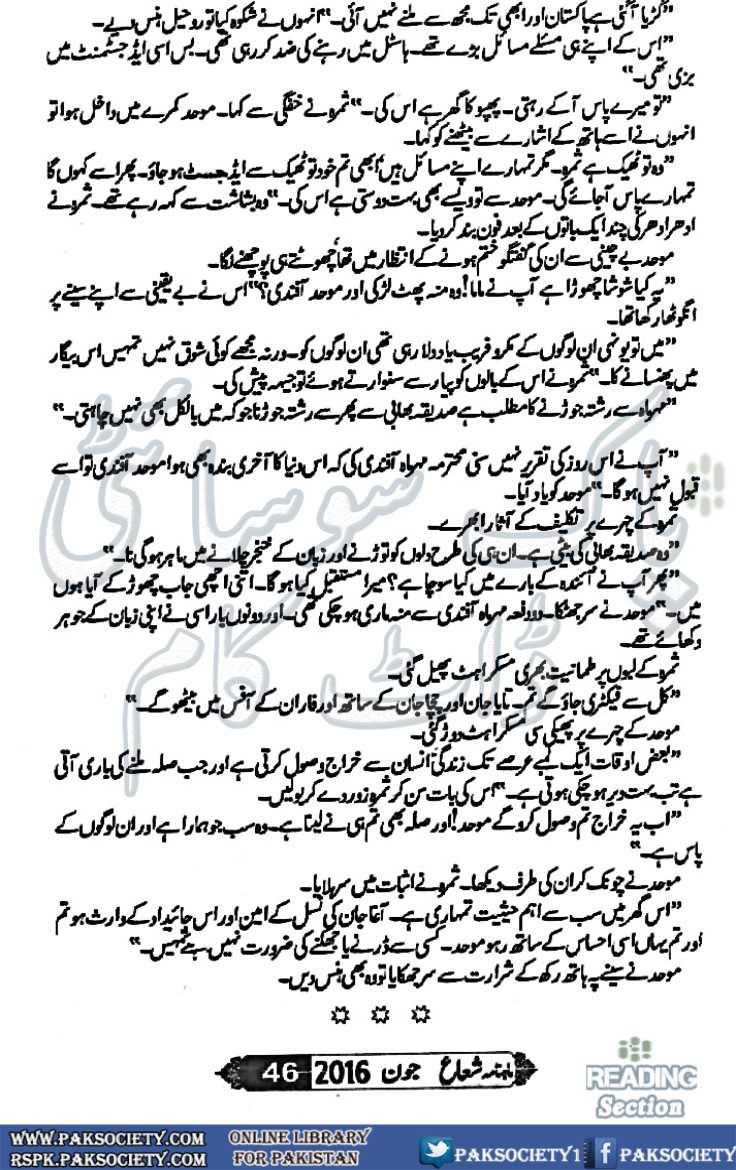 ”گڑیا آگئی ہے پاکستان اور ابھی تک مجھ سے ملنے نہیں آئی۔“ انہوں نے شکوہ کیا تو روحیل ہنس دیے۔
”اس کے اپنے ہی مسئلے مسائل بڑے تھے۔ ہاسٹل میں رہنے کی ضد کر رہی تھی۔ بس اسی ایڈجسٹمنٹ میں
بزی تھی۔“
”تو میرے پاس آ کے رہتی۔ پھپو کا گھر ہے اس کی۔“ ثمرہ نے خفگی سے کہا۔ موحد کمرے میں داخل ہوا تو
انہوں نے اسے ہاتھ کے اشارے سے بیٹھنے کو کہا۔
”وہ تو ٹھیک ہے ثمرہ۔ مگر تمہارے اپنے مسائل ہیں ابھی تم خود تو ٹھیک سے ایڈجسٹ ہو جاؤ۔ پھر اسے کہوں گا
تمہارے پاس آجائے گی۔ موحد سے تو ویسے بھی بہت دوستی ہے اس کی۔“ وہ بشاشت سے کہہ رہے تھے۔ ثمرہ نے
ادھر ادھر کی چند ایک باتوں کے بعد فون بند کر دیا۔
موحد بے چینی سے ان کی گفتگو ختم ہونے کے انتظار میں تھا چھوٹتے ہی پوچھنے لگا۔
”یہ کیا شوشا چھوڑا ہے آپ نے ماما! وہ منہ پھٹ لڑکی اور موحد آفندی؟“ اس نے بے یقینی سے اپنے سینے پر
انگوٹھا رکھا تھا۔
”میں تو یونہی ان لوگوں کے مکر و فریب یاد دلا رہی تھی ان لوگوں کو۔ ورنہ مجھے کوئی شوق نہیں تمہیں اس بیگار
میں پھنسانے کا۔“ ثمرہ نے اس کے بالوں کو پیار سے سنوارتے ہوئے توجیہہ پیش کی۔
”مہماہ سے رشتہ جوڑنے کا مطلب ہے صدیقہ بھابی سے پھر سے رشتہ جوڑنا جو کہ میں بالکل بھی نہیں چاہتی۔“
”آپ نے اس روز کی تقریر نہیں سنی محترمہ مہماہ آفندی کی کہ اس دنیا کا آخری بندہ بھی ہوا موحد آفندی تو اسے
قبول نہیں ہو گا۔“ موحد کو یاد آیا۔
ثمرہ کے چہرے پر تکلیف کے آثار ابھرے۔
”وہ صدیقہ بھابی کی بیٹی ہے۔ ان ہی کی طرح دلوں کو توڑنے اور زبان کے خنجر چلانے میں ماہر ہو گی نا۔“
”پھر آپ نے آئندہ کے بارے میں کیا سوچا ہے؟ میرا مستقبل کیا ہو گا۔ اتنی اچھی جاب چھوڑ کے آیا ہوں
میں۔“ موحد نے سر جھٹکا۔ دو دفعہ مہماہ آفندی سے منہ ماری ہو چکی تھی۔ اور دونوں بار اسی نے اپنی زبان کے جوہر
دکھائے تھے۔
ثمرہ کے لبوں پر طمانیت بھری مسکراہٹ پھیل گئی۔
”کل سے فیکٹری جاؤ گے تم۔ تایا جان اور چچا جان کے ساتھ اور فاران کے آفس میں بیٹھو گے۔“
موحد کے چہرے پر پھیکی سی مسکراہٹ دوڑ گئی۔
”بعض اوقات ایک لمبے عرصے تک زندگی انسان سے خراج وصول کرتی ہے اور جب صلہ ملنے کی باری آتی
ہے تب بہت دیر ہو چکی ہوتی ہے۔“ اس کی بات سن کر ثمرہ زور دے کر بولیں۔
”اب یہ خراج تم وصول کرو گے موحد! اور صلہ بھی تم ہی نے لینا ہے۔ وہ سب جو ہمارا ہے اور ان لوگوں کے
پاس ہے۔“
موحد نے چونک کر ان کی طرف دیکھا۔ ثمرہ نے اثبات میں سر ہلایا۔
”اس گھر میں سب سے اہم حیثیت تمہاری ہے۔ آغا جان کی نسل کے امین اور اس جائیداد کے وارث ہو تم
اور تم یہاں اسی احساس کے ساتھ رہو موحد۔ کسی سے ڈرنے یا جھکنے کی ضرورت نہیں ہے تمہیں۔“
موحد نے سینے پہ ہاتھ رکھ کے شرارت سے سر جھکایا تو وہ بھی ہنس دیں۔
پاک سوسائٹی
ڈاٹ کام
ماہنامہ شعاع جون 2016 46
READING
Section
WWW.PAKSOCIETY.COM
RSPK.PAKSOCIETY.COM
ONLINE LIBRARY
FOR PAKISTAN
PAKSOCIETY1
PAKSOCIETY